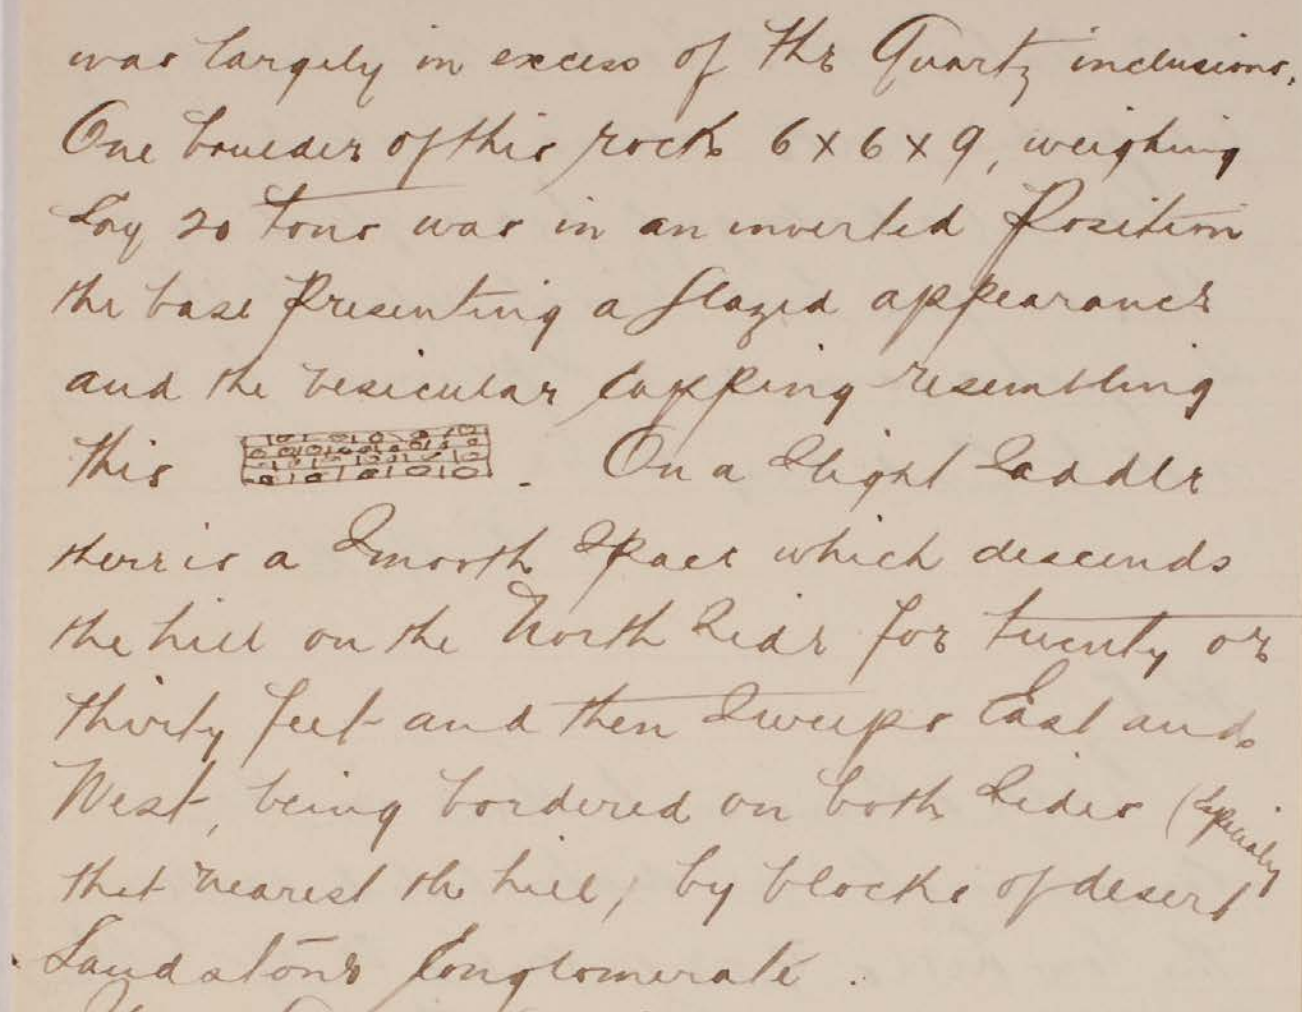 was largely in excess of the Quartz inclusions.
One boulder of this rock 6 x 6 x 9, weighing
Say 20 tons was in an inverted Position
the base Presenting a glazed appearance
and the vesicular capping resembling
this . On a Slight Saddle
there is a Smooth Space which descends
the hill on the North Side for twenty or
thirty feet and then Sweeps East and
West, being bordered on both Sides (Specially
that nearest the hill) by blocks of desert
Sandstone Conglomerate .